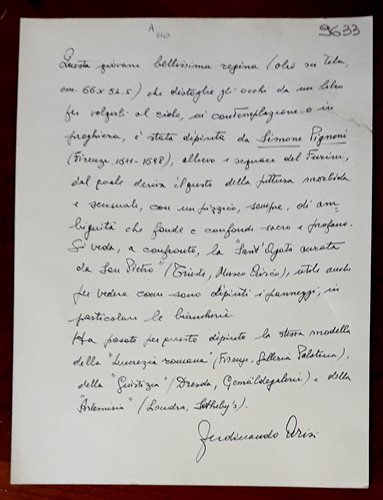 A
310
9633
Questa giovane bellissima regina (olio su tela,
cm. 66 x 52.5) che distoglie gli occhi da un libro
per volgerli al cielo, in contemplazione o in
preghiera, è stata dipinta da Simone Pignoni
(Firenze 1611-1698), allievo e seguace del Furini,
dal quale deriva il gusto della pittura morbida
e sensuale, con un pizzico, sempre, di am-
biguità che fonde e confonde sacro e profano.
Si veda, a confronto, la "Sant'Agata curata
da San Pietro" (Trieste, Museo Civico), utile anche
per vedere come sono dipinti i panneggi, in
particolare le biancherie.
Ha posato per questo dipinto la stessa modella
della "Lucrezia romana" (Firenze, Galleria Palatina),
della "Giustizia" (Dresda, Gemäldegalerie) e della
"Artemisia" (Londra, Sotheby's).
Ferdinando Arisi